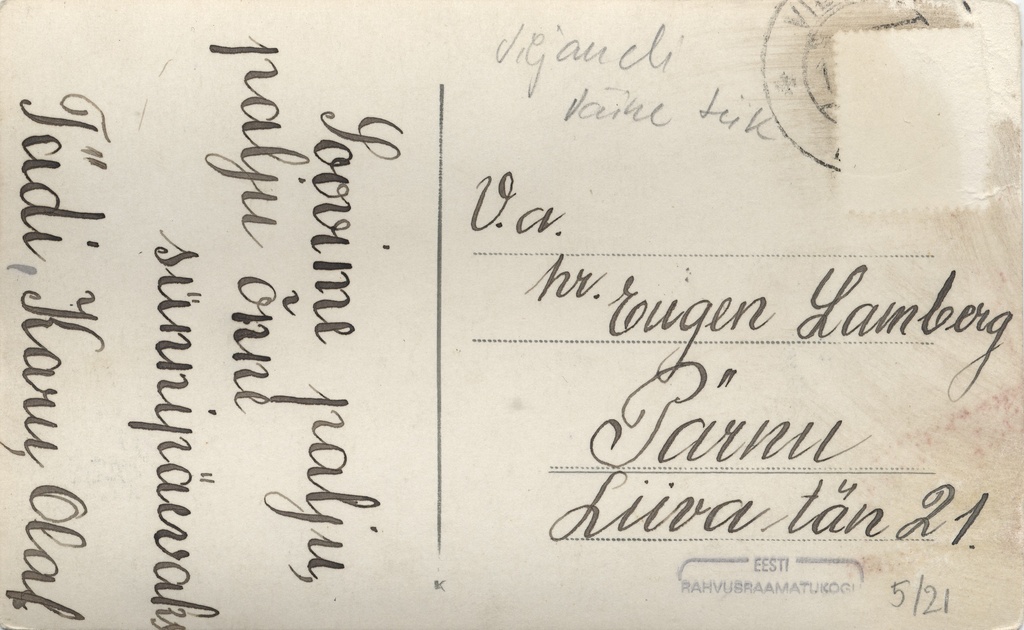 Soovime palju,
palju õnne
sünnipäevaks
Tädi, Karu, Olaf
Viljandi
väike tükk
V.a.
hr. Eugen Lamberg
Pärnu
Liiva tän 21.
K
EESTI
RAHVUSRAAMATUKOGU
5/21